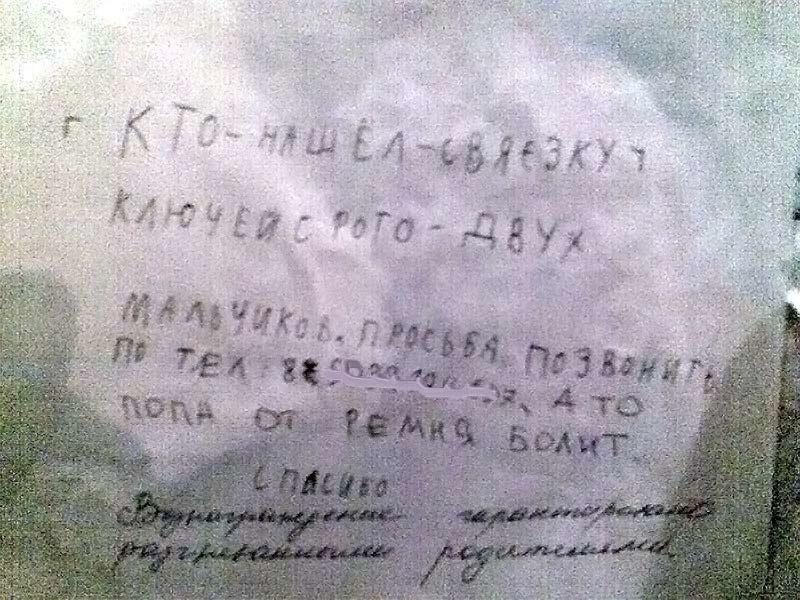 КТО-НАШЁЛ-СВЯЕЗКУ
КЛЮЧЕЙ С РОТО-ДВУХ
МАЛЬЧИКОВ. ПРОСЬБА ПОЗВОНИТЬ
ПО ТЕЛ 8 А ТО
ПОПА ОТ РЕМНЯ БОЛИТ.
СПАСИБО
Вознаграждение гарантировано
разгневанными родителями